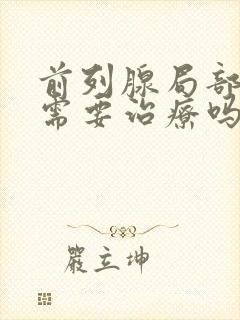 前列腺局部
需要治疗吗
严立坤